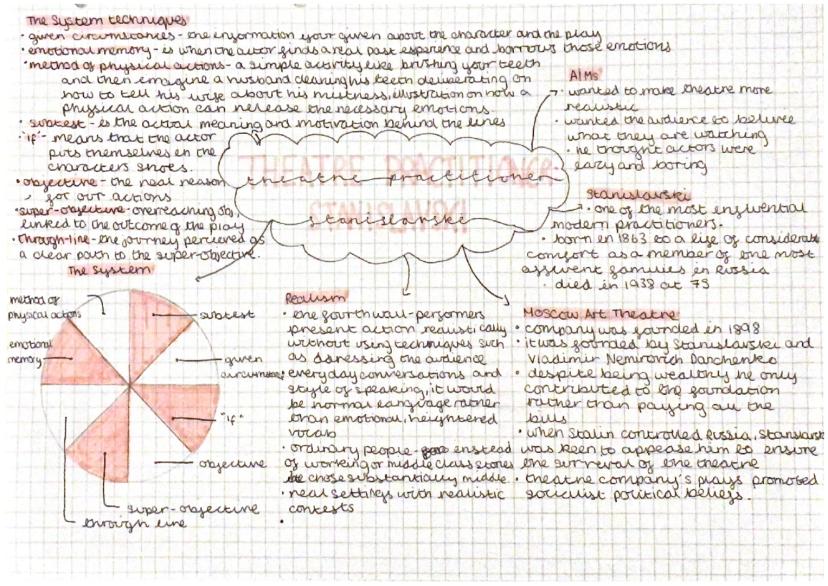 The System techniques
· given circumstances - the information your given about the character and the play
· emotional memory - is when the actor finds a real past experience and borrows those emotions
· method of physical actions - a simple activity like brushing your teeth
and then imagine a husband cleaning his teeth deliberating on
how to tell his wife about his mistress, illustration on how a
physical action can release the necessary emotions.
· subtext - is the actual meaning and motivation behind the lines
· "if" - means that the actor
puts themselves in the
characters shoes.
· objective - the real reason
for our actions
· super-objective - overreaching obj,
linked to the outcome of the play
· through-line - the journey perceived as
a clear path to the super objective.
AIMs
· wanted to make theatre more
realistic
· wanted the audience to believe
what they are watching
· he thought actors were
lazy and boring
THEATRE PRACTITIONER
theatre practitioner
STANISLAVSKI
stanislavski
Stanislavski
· one of the most influential
modern practitioners.
· born in 1863 to a life of considerable
comfort as a member of one most
affluent families in Russia
· died in 1938 at 75
The System
method of
physical actions
subtext
emotional
memory
given
circumstances
"if"
objective
super-objective
through line
Realism
· the fourth wall - performers
present action realistically
without using techniques such
as addressing the audience
· everyday conversations and
style of speaking, it would
be normal language rather
than emotional, heightened
vocab
· ordinary people - instead
of working or middle class stories
he chose substantially middle.
· real settings with realistic
contexts
·
Moscow Art Theatre
· company was founded in 1898
· it was founded by Stanislavski and
Vladimir Nemirovich Danchenko
· despite being wealthy he only
contributed to the foundation
rather than paying all the
bills
· when Stalin controlled Russia, Stanislavski
was keen to appease him to ensure
the survival of the theatre
· theatre company's plays promoted
socialist political beliefs.